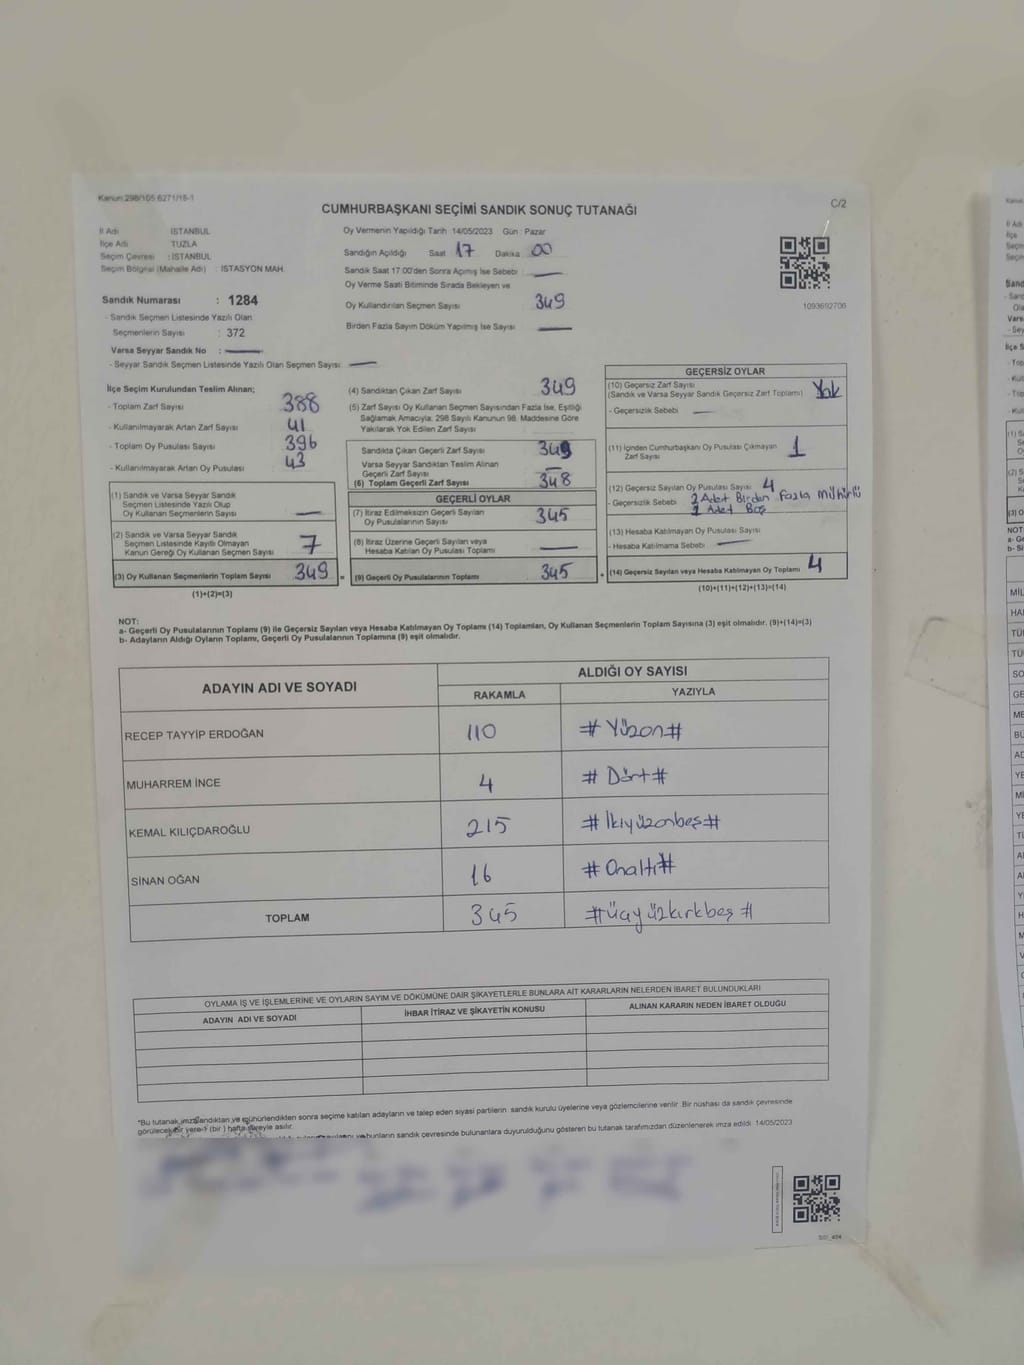 Kanun:298/105 6271/15-1
CUMHURBAŞKANI SEÇİMİ SANDIK SONUÇ TUTANAĞI
C/2
İl Adı İSTANBUL
İlçe Adı TUZLA
Seçim Çevresi : İSTANBUL
Seçim Bölgesi (Mahalle Adı) : İSTASYON MAH.
Oy Vermenin Yapıldığı Tarih 14/05/2023 Gün : Pazar
Sandığın Açıldığı Saat 17 Dakika 00
Sandık Saat 17:00'den Sonra Açılmış İse Sebebi : —
Oy Verme Saati Bitiminde Sırada Bekleyen ve
Oy Kullandırılan Seçmen Sayısı 349
Birden Fazla Sayım Döküm Yapılmış İse Sayısı —
1093692706
Sandık Numarası : 1284
- Sandık Seçmen Listesinde Yazılı Olan
Seçmenlerin Sayısı : 372
Varsa Seyyar Sandık No : —
- Seyyar Sandık Seçmen Listesinde Yazılı Olan Seçmen Sayısı : —
İlçe Seçim Kurulundan Teslim Alınan;
- Toplam Zarf Sayısı 388
- Kullanılmayarak Artan Zarf Sayısı 41
- Toplam Oy Pusulası Sayısı 396
- Kullanılmayarak Artan Oy Pusulası 43
(1) Sandık ve Varsa Seyyar Sandık
Seçmen Listesinde Yazılı Olup
Oy Kullanan Seçmenlerin Sayısı —
(2) Sandık ve Varsa Seyyar Sandık
Seçmen Listesinde Kayıtlı Olmayan
Kanun Gereği Oy Kullanan Seçmen Sayısı 7
(3) Oy Kullanan Seçmenlerin Toplam Sayısı 349
(1)+(2)=(3)
(4) Sandıktan Çıkan Zarf Sayısı 349
(5) Zarf Sayısı Oy Kullanan Seçmen Sayısından Fazla İse, Eşitliği
Sağlamak Amacıyla; 298 Sayılı Kanunun 98. Maddesine Göre
Yakılarak Yok Edilen Zarf Sayısı
Sandıkta Çıkan Geçerli Zarf Sayısı 349
Varsa Seyyar Sandıktan Teslim Alınan
Geçerli Zarf Sayısı —
(6) Toplam Geçerli Zarf Sayısı 348
GEÇERLİ OYLAR
(7) İtiraz Edilmeksizin Geçerli Sayılan
Oy Pusulalarının Sayısı 345
(8) İtiraz Üzerine Geçerli Sayılan veya
Hesaba Katılan Oy Pusulası Toplamı —
= (9) Geçerli Oy Pusulalarının Toplamı 345
GEÇERSİZ OYLAR
(10) Geçersiz Zarf Sayısı
(Sandık ve Varsa Seyyar Sandık Geçersiz Zarf Toplamı) Yok
- Geçersizlik Sebebi —
(11) İçinden Cumhurbaşkanı Oy Pusulası Çıkmayan
Zarf Sayısı 1
(12) Geçersiz Sayılan Oy Pusulası Sayısı 4
- Geçersizlik Sebebi 2 Adet Birden Fazla Mühürlü
Adet Boş
(13) Hesaba Katılmayan Oy Pusulası Sayısı
- Hesaba Katılmama Sebebi —
+ (14) Geçersiz Sayılan veya Hesaba Katılmayan Oy Toplamı 4
(10)+(11)+(12)+(13)=(14)
NOT:
a- Geçerli Oy Pusulalarının Toplamı (9) ile Geçersiz Sayılan veya Hesaba Katılmayan Oy Toplamı (14) Toplamları, Oy Kullanan Seçmenlerin Toplam Sayısına (3) eşit olmalıdır. (9)+(14)=(3)
b- Adayların Aldığı Oyların Toplamı, Geçerli Oy Pusulalarının Toplamına (9) eşit olmalıdır.
ADAYIN ADI VE SOYADI
ALDIĞI OY SAYISI
RAKAMLA YAZIYLA
RECEP TAYYİP ERDOĞAN 110 # Yüzon #
MUHARREM İNCE 4 # Dört #
KEMAL KILIÇDAROĞLU 215 # İkiyüzonbeş #
SİNAN OĞAN 16 # Onaltı #
TOPLAM 345 # Üçyüzkırkbeş #
OYLAMA İŞ VE İŞLEMLERİNE VE OYLARIN SAYIM VE DÖKÜMÜNE DAİR ŞİKAYETLERLE BUNLARA AİT KARARLARIN NELERDEN İBARET BULUNDUKLARI
ADAYIN ADI VE SOYADI İHBAR İTİRAZ VE ŞİKAYETİN KONUSU ALINAN KARARIN NEDEN İBARET OLDUĞU
*Bu tutanak imzalandıktan ve mühürlendikten sonra seçime katılan adayların ve talep eden siyasi partilerin sandık kurulu üyelerine veya gözlemcilerine verilir. Bir nüshası da sandık çevresinde
görülecek bir yere 1 (bir) hafta süreyle asılır.
bunların sandık çevresinde bulunanlara duyurulduğunu gösteren bu tutanak tarafımızdan düzenlenerek imza edildi. 14/05/2023